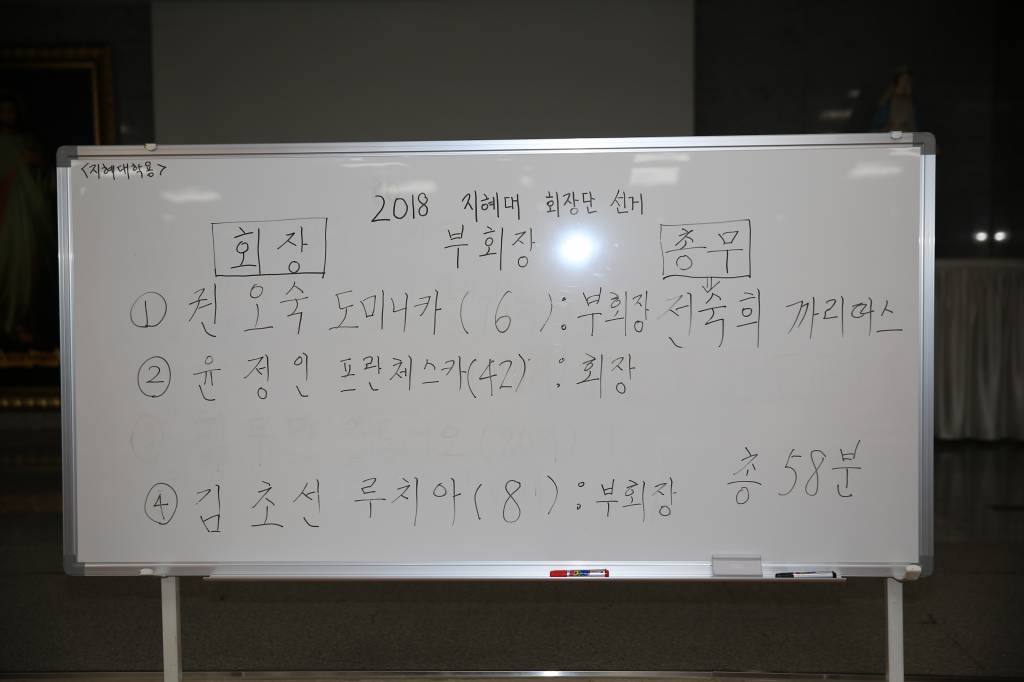 <지혜대학용>
2018 지혜대 회장단 선거
회장 부회장 총무
① 권 오숙 도미니카 ( 6 ) : 부회장 전숙희 까리따스
② 윤 정 인 프란체스카 (42) : 회장
④ 김 초 선 루치아 ( 8 ) : 부회장
총 58분